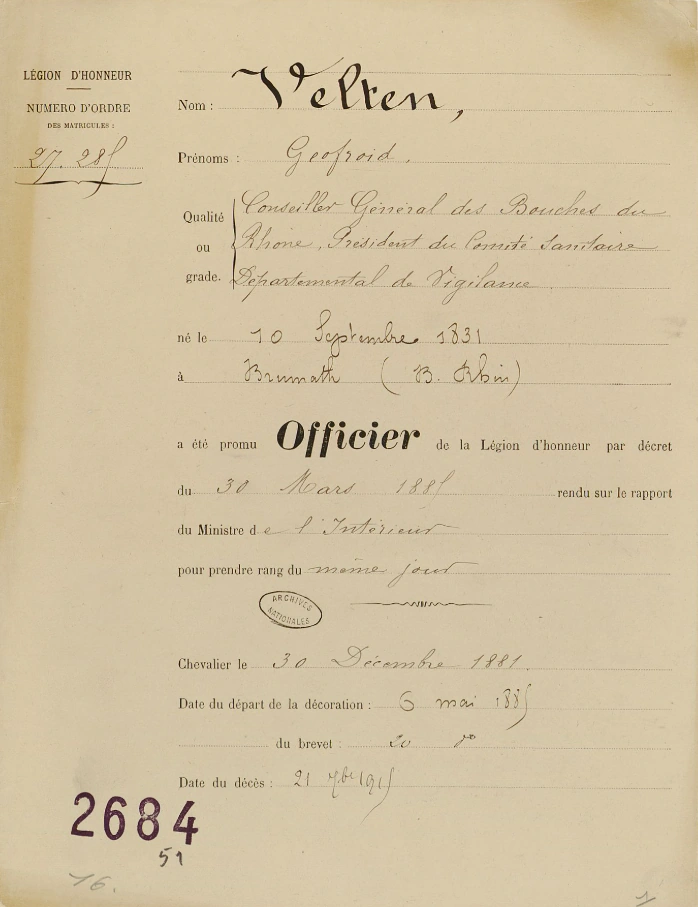 LÉGION D'HONNEUR
NUMERO D'ORDRE
DES MATRICULES :
27.285
Nom : Velten,
Prénoms : Geofroid.
Qualité ou grade. Conseiller Général des Bouches du
Rhône, Président du Comité Sanitaire
Départemental de Vigilance
né le 10 Septembre 1831
à Brumath (B. Rhin)
a été promu Officier de la Légion d'honneur par décret
du 30 Mars 1885 rendu sur le rapport
du Ministre de l'Intérieur
pour prendre rang du même jour
ARCHIVES
NATIONALES
Chevalier le 30 Décembre 1881.
Date du départ de la décoration : 6 mai 1885
du brevet : 20 do
Date du décès : 21 7bre 1915
2684
51
76.
1